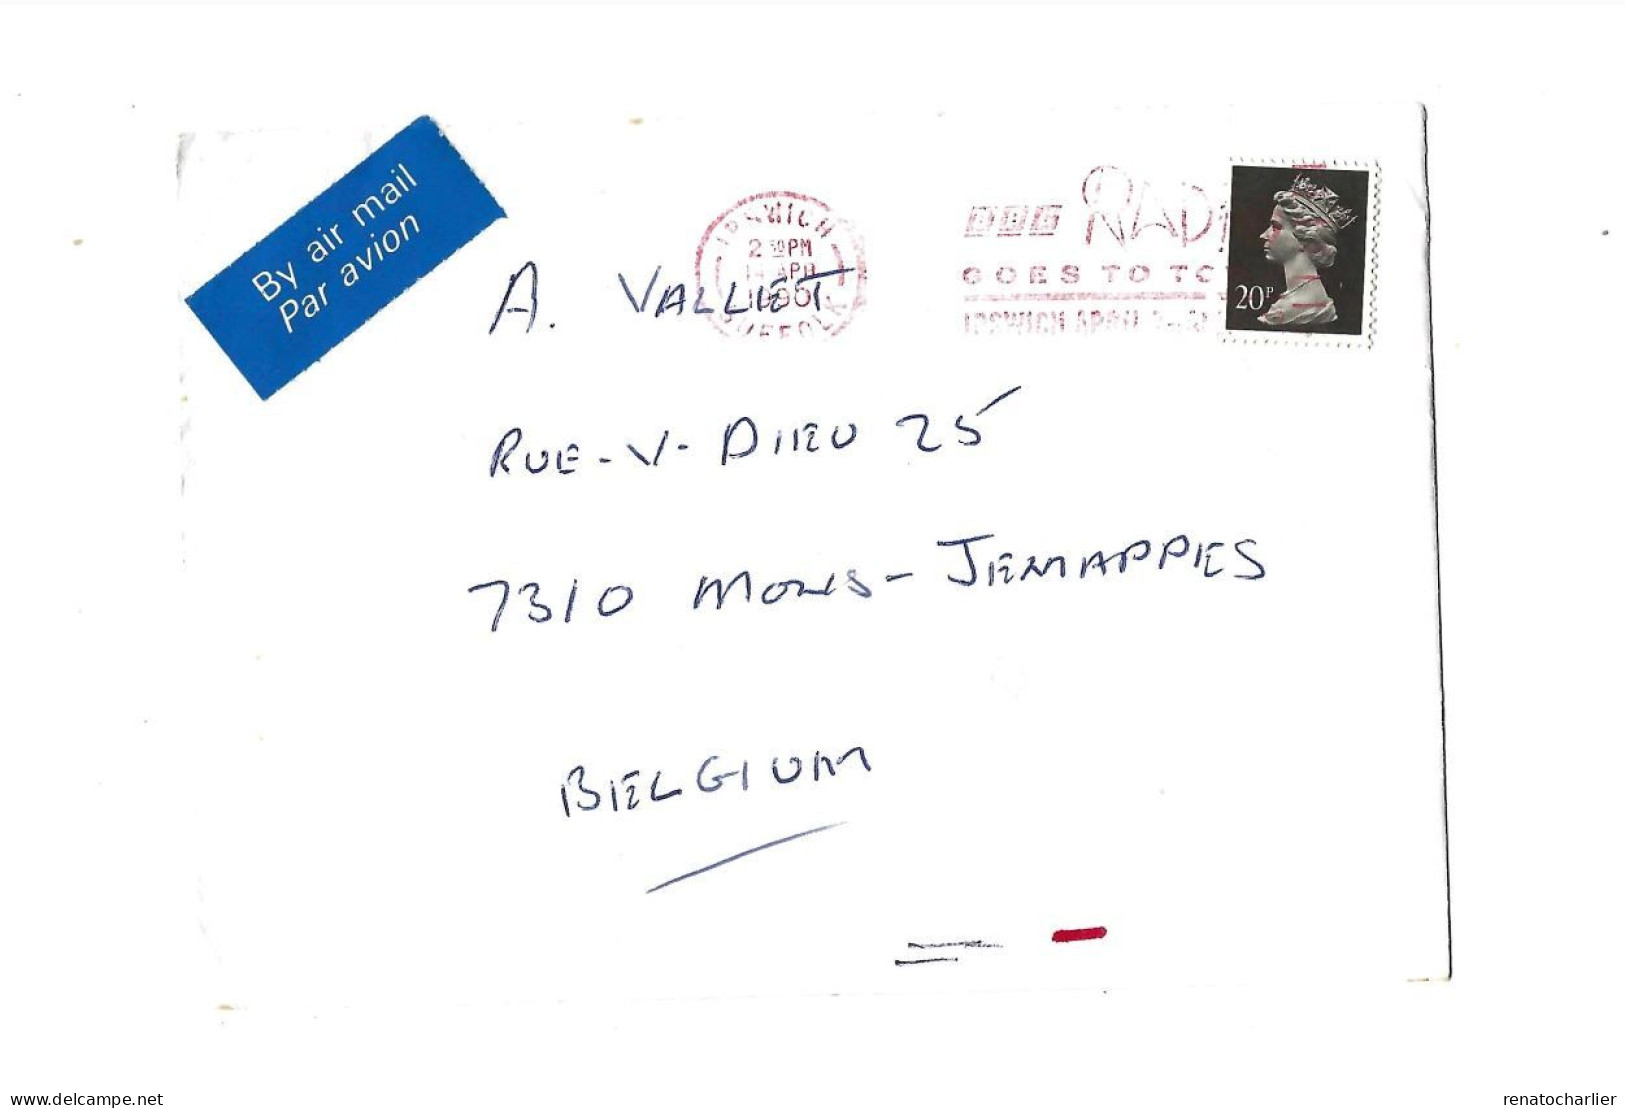 By air mail
Par avion
IPSWICH
2 30 PM
14 APR
1990
SUFFOLK
BBC RADI
GOES TO TO
IPSWICH APRIL
20P
A. VALLIET
RUE-V-DIEU 25
7310 MONS-JEMAPPES
BELGIUM
www.delcampe.net
renatocharlier